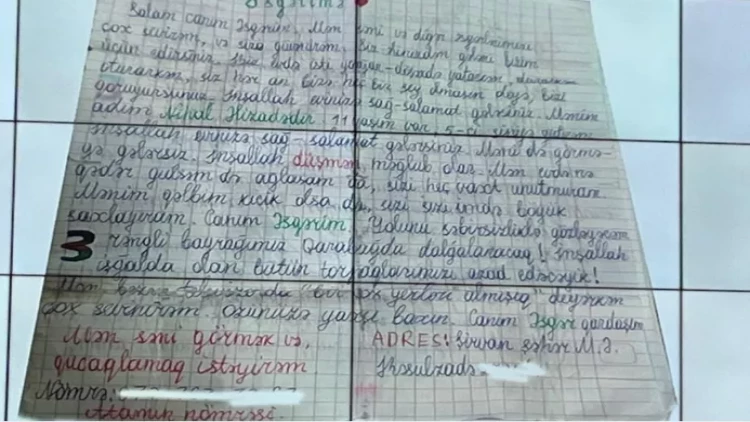 Əsgərimə
Salam canım Əsgərim. Mən səni və digər əsgərlərimizi
çox sevirəm, və sizə güvənirəm. Siz hər an bizim
üçün edirsiniz. Biz evdə isti
otararkən, siz hər an bizə heç bir şey olmasın deyə, bizi
qoruyursunuz. İnşallah evinizə sağ-salamat gələrsiniz. Mənim
adım Nihal Hizadədir. 11 yaşım var, 5-ci sinifə gedirəm.
İnşallah evinizə sağ-salamat gələrsiniz. Məni də görmə-
yə gələrsiz. İnşallah düşmən məğlub olar. Mən evdə nə
qədər gulsəm də ağlasam da, sizi heç vaxt unutmuram.
Mənim qəlbim kiçik olsa da, sizi içimdə böyük
saxlayıram. Canım Əsgərim. Yolunu səbirsizliklə gözləyirəm
3 rəngli bayrağımız Qarabağda dalğalanacaq! İnşallah
işğalda olan bütün torpaqlarımızı azad edəcəyik!
Mən hər televizorda "bir çox yerləri almışıq" deyərkən
çox sevinirəm. Özünüzə yaxşı baxın. Canım Əsgər qardaşım
Mən səni görmək və ADRES: Şirvan şəhər M.Ə.
qucaqlamaq istəyirəm Rəsulzadə
Nömrə:
Atamın nömrəsi.